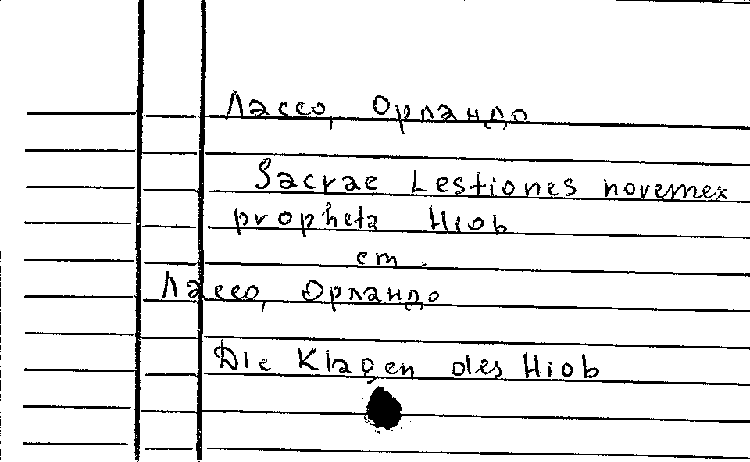 Лассо, Орландо
Sacrae Lestiones novemex
propheta Hiob
cm.
Лассо, Орландо
Die Klagen des Hiob